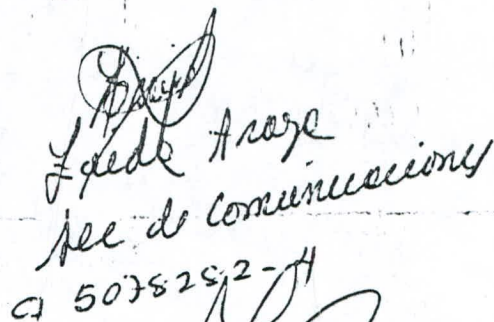 Zaida Araya
Sec de Comunicaciones
CI 5078282-H